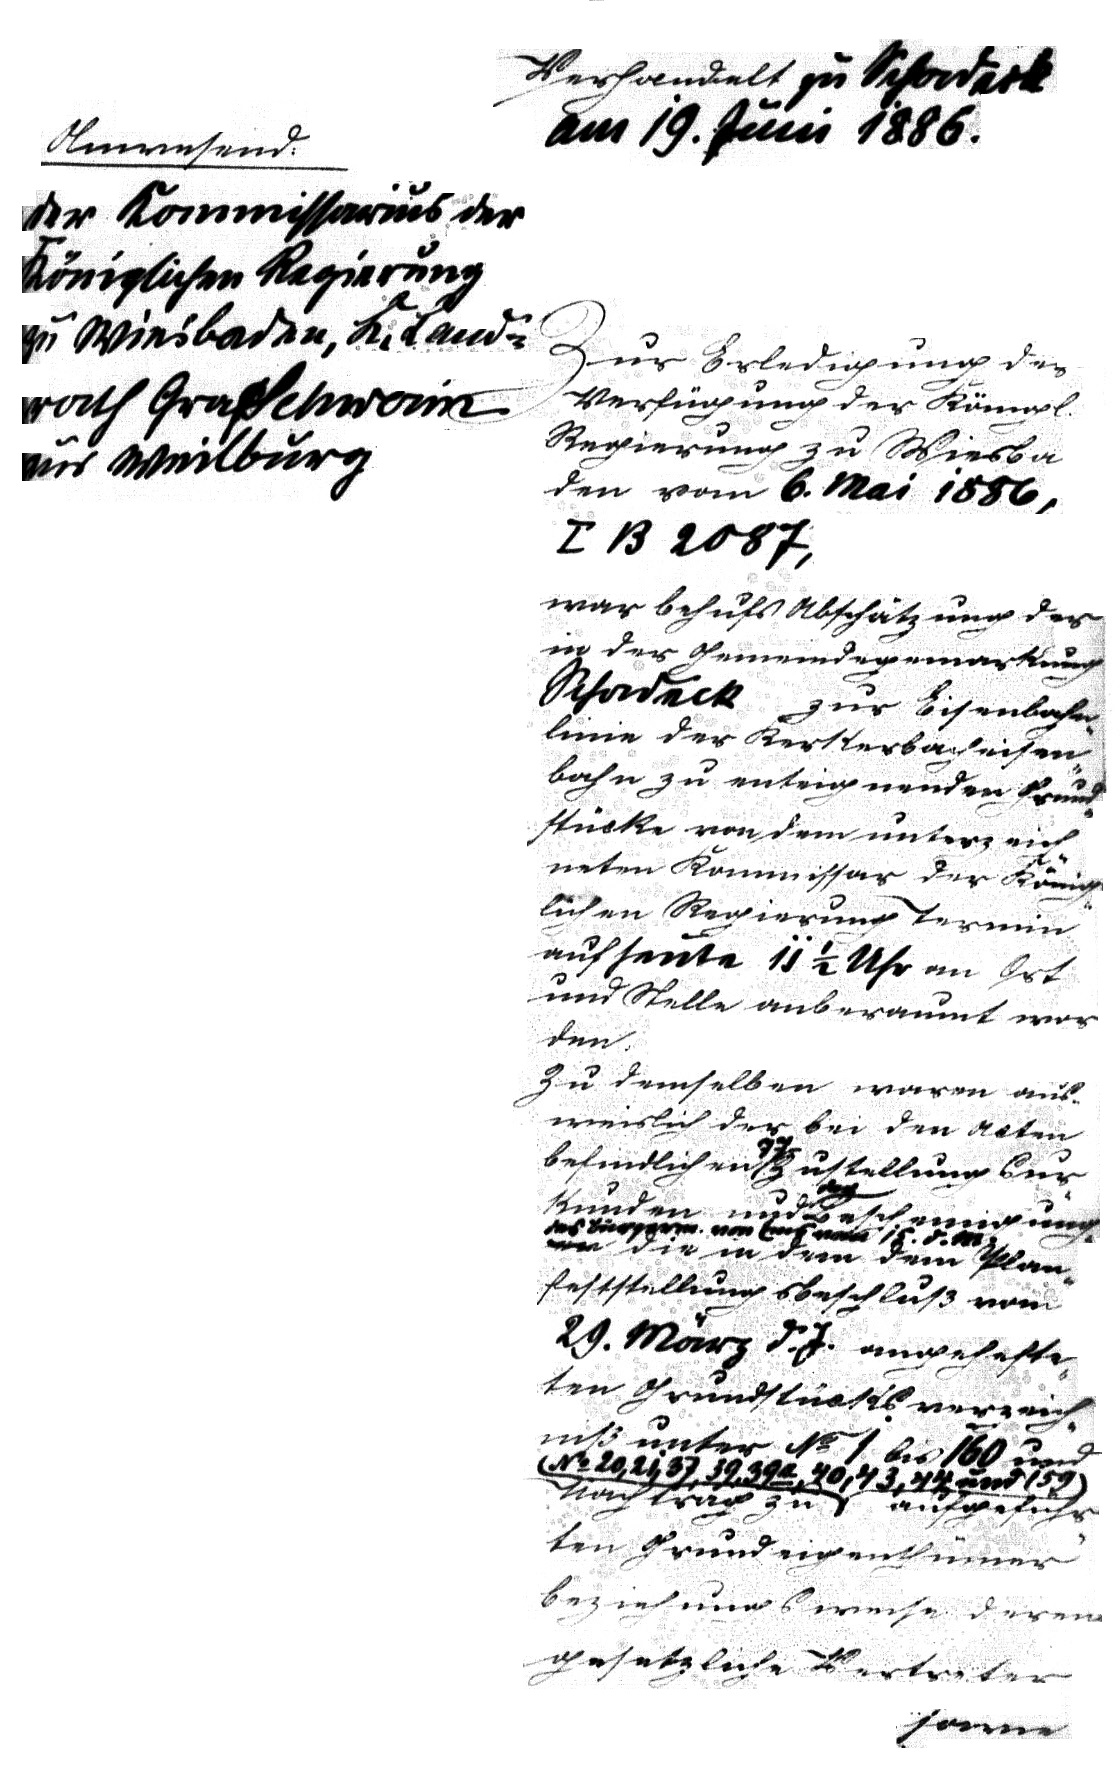 Verhandelt zu Schadeck
am 19. Juni 1886.
Anwesend:
der Kommissarius der
Königlichen Regierung
zu Wiesbaden, K. Land-
rath Graf Schwerin
aus Weilburg
Zur Erledigung der
Verfügung der Königl.
Regierung zu Wiesba
den vom 6. Mai 1886,
I B 2087,
war behufs Abschätzung der
in der Gemeindegemarkung
Schadeck zur Eisenbahn-
linie der Kerkerbacheisen-
bahn zu enteignenden Grund-
stücke von dem unterzeich
neten Kommissar der König-
lichen Regierung Termin
auf heute 11 ½ Uhr an Ort
und Stelle anberaumt wor
den.
Zu demselben waren aus-
weislich der bei den Acten
befindlichen 77 Zustellungs Ur-
kunden und der Bescheinigung
des Bürgerm. von vom 15. d. M.
die in dem dem Plan-
feststellungsbeschluß vom
29. März d. J. angehefte-
ten Grundstücksverzeich-
niß unter No 1 bis 160 und
(No 20, 21, 37, 39, 39a, 40, 43, 44 und 159)
Nachtrag zu aufgeführ-
ten Grundeigenthümer
beziehungsweise deren
gesetzliche Vertreter
sowie